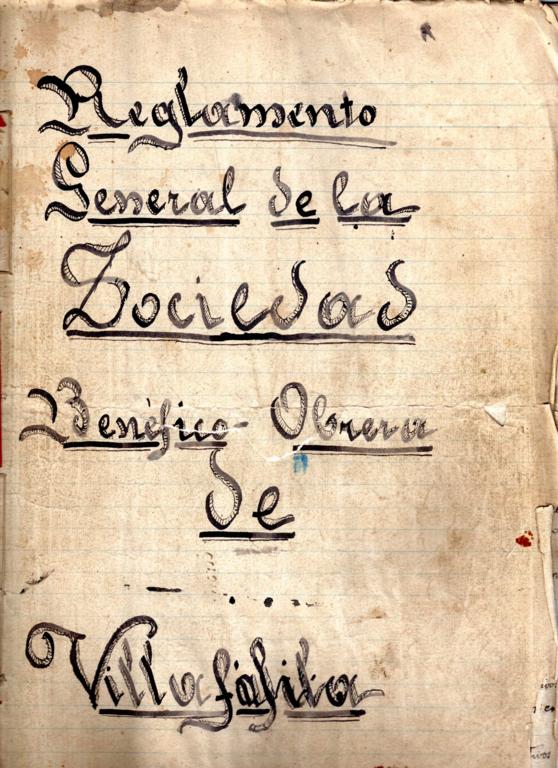 Reglamento
General de la
Sociedad
Benéfico Obrera
de
Villafáfila